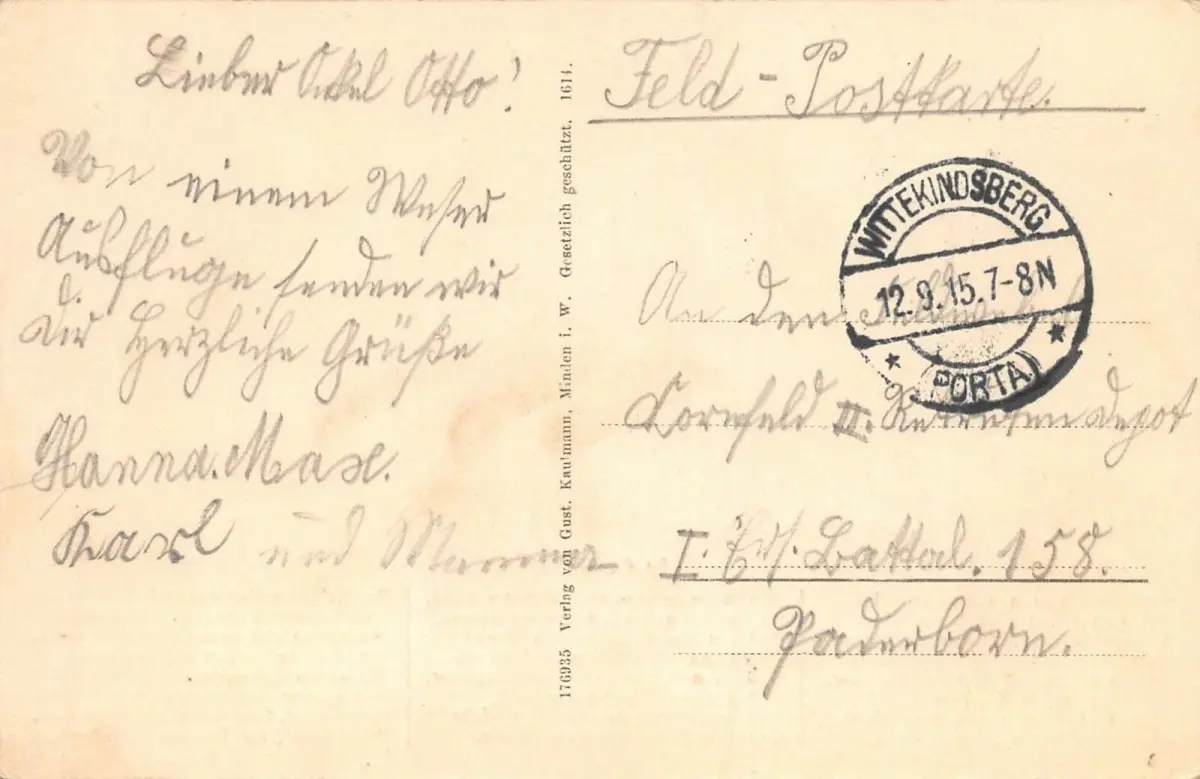 Lieber Onkel Otto!
Von einem Weser
Ausfluge senden wir
Dir Herzliche Grüße
Hanna. Max.
Karl und Mamma
176935 Verlag von Gust. Kaufmann, Minden i. W. Gesetzlich geschützt. 1614.
Feld-Postkarte.
WITTEKINDSBERG
12.9.15.7-8N
(PORTA)
An den
Cornfeld II. Rekruten Depot
I. Ers. Battal. 158.
Paderborn.